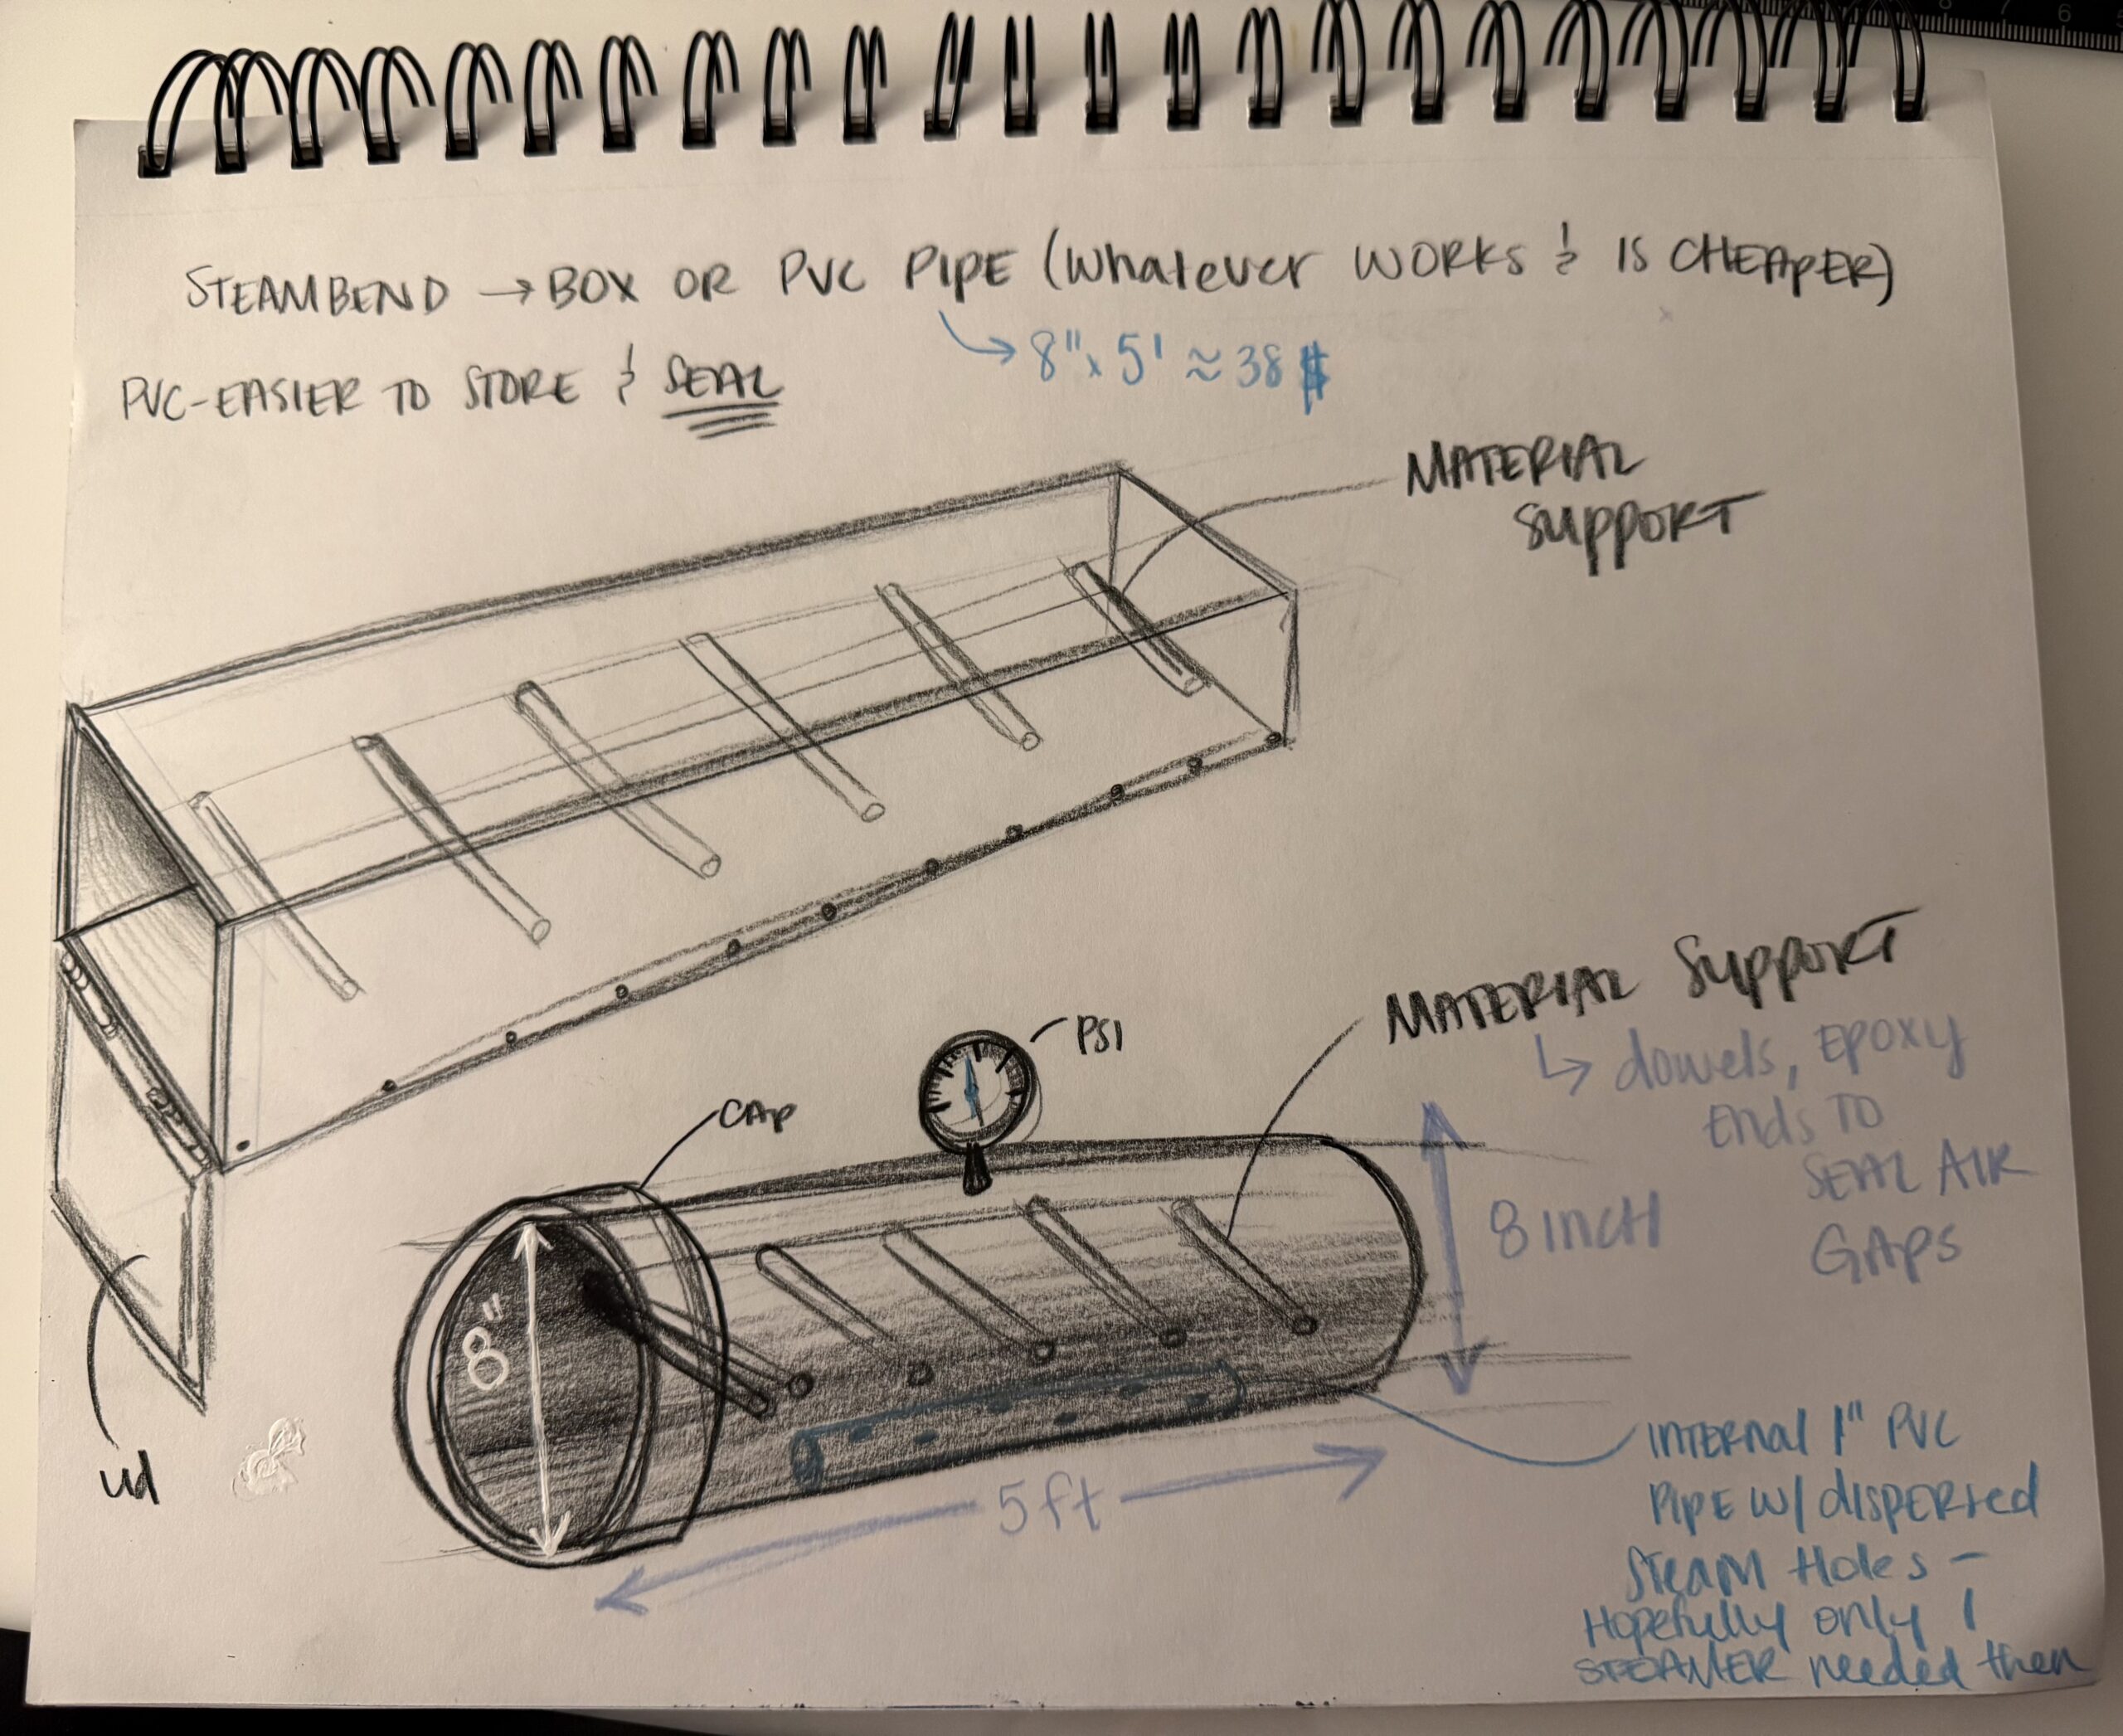 STEAMBEND → BOX OR PVC PIPE (whatever WORKS & IS CHEAPER)
↳ 8" x 5' ≈ 38 $
PVC-EASIER TO STORE & SEAL
MATERIAL
SUPPORT
MATERIAL SUPPORT
↳ dowels, EPOXY
Ends TO
SEAL AIR
GAPS
PSI
CAP
8 INCH
8"
5ft
Lid
INTERNAL 1" PVC
PIPE W/ dISPERSED
STEAM HOLES -
HOPEFULLY only 1
STEAMER needed then
8 7 6